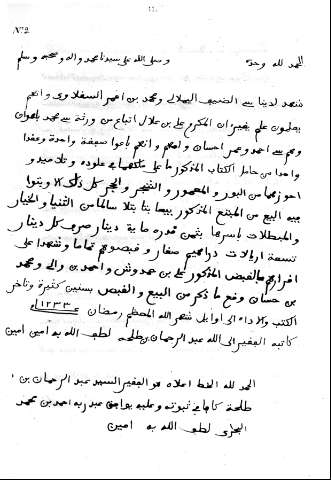 Nº2
الحمد لله وحده وصلى الله على سيدنا محمد واله وصحبه وسلم
شهد لدينا الضعيف الهلالي ومحمد بن اعمر السفلاوي وانهم
يعلمون علم يقين ان المكرم علي بن علال ابتاع من ورثة
وهم احمد وعمر احسان وانهم باعوا صفقة واحدة وعقدا
واحدا من حامل الكتاب المذكور ما على ملكهما في
احوزيهما من البور والمعمور والشجر والحجر كل ذلك
فيه البيع من المبتع المذكور بيعا بتا بتلا سالما من الثنيا والخيار
والمبطلات باسرها بثمن قدره ماية دينار صرف كل دينار
تسعة اريالات دراهم صغار وقبضوهم تماما وشهدا على
بالقبض المذكور علي بن حمدوش واحمد بن والي ومحمد
بن حسان وقع ما ذكر من البيع والقبض بسنين كثيرة وتاخر
الكتب والاداء الى اوايل شهر الله المعظم رمضان ١٢٣٣
كاتبه الفقير الى الله عبد الرحمان بن طلحة لطف الله به امين امين
الحمد لله الخط اعلاه هو الفقير السيد عبد الرحمان بن
طلحة كما في ثبوته وعليه يوافق عبد ربه احمد بن محمد
لطف الله به امين